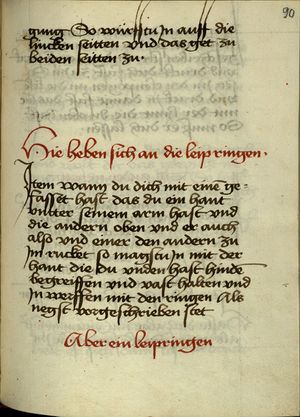 90
gung So würstu In auff die
lincken seitten vnd das get zu
beiden seitten zu.
Hie heben sich an die leip ringen.
Item wann du dich mit eine͂ ge-
fasset hast das du ein hant
vntter seinem arm hast vnd
die andern oben vnd er auch
also vnd einer den andern zu
Im rucket so magstu In mit der
hant die du vnden hast hinde͂
begreiffen vnd vast halten vnd
In werffen mit den ringen Als
negst vorgeschrieben stet
Aber ein leipringen